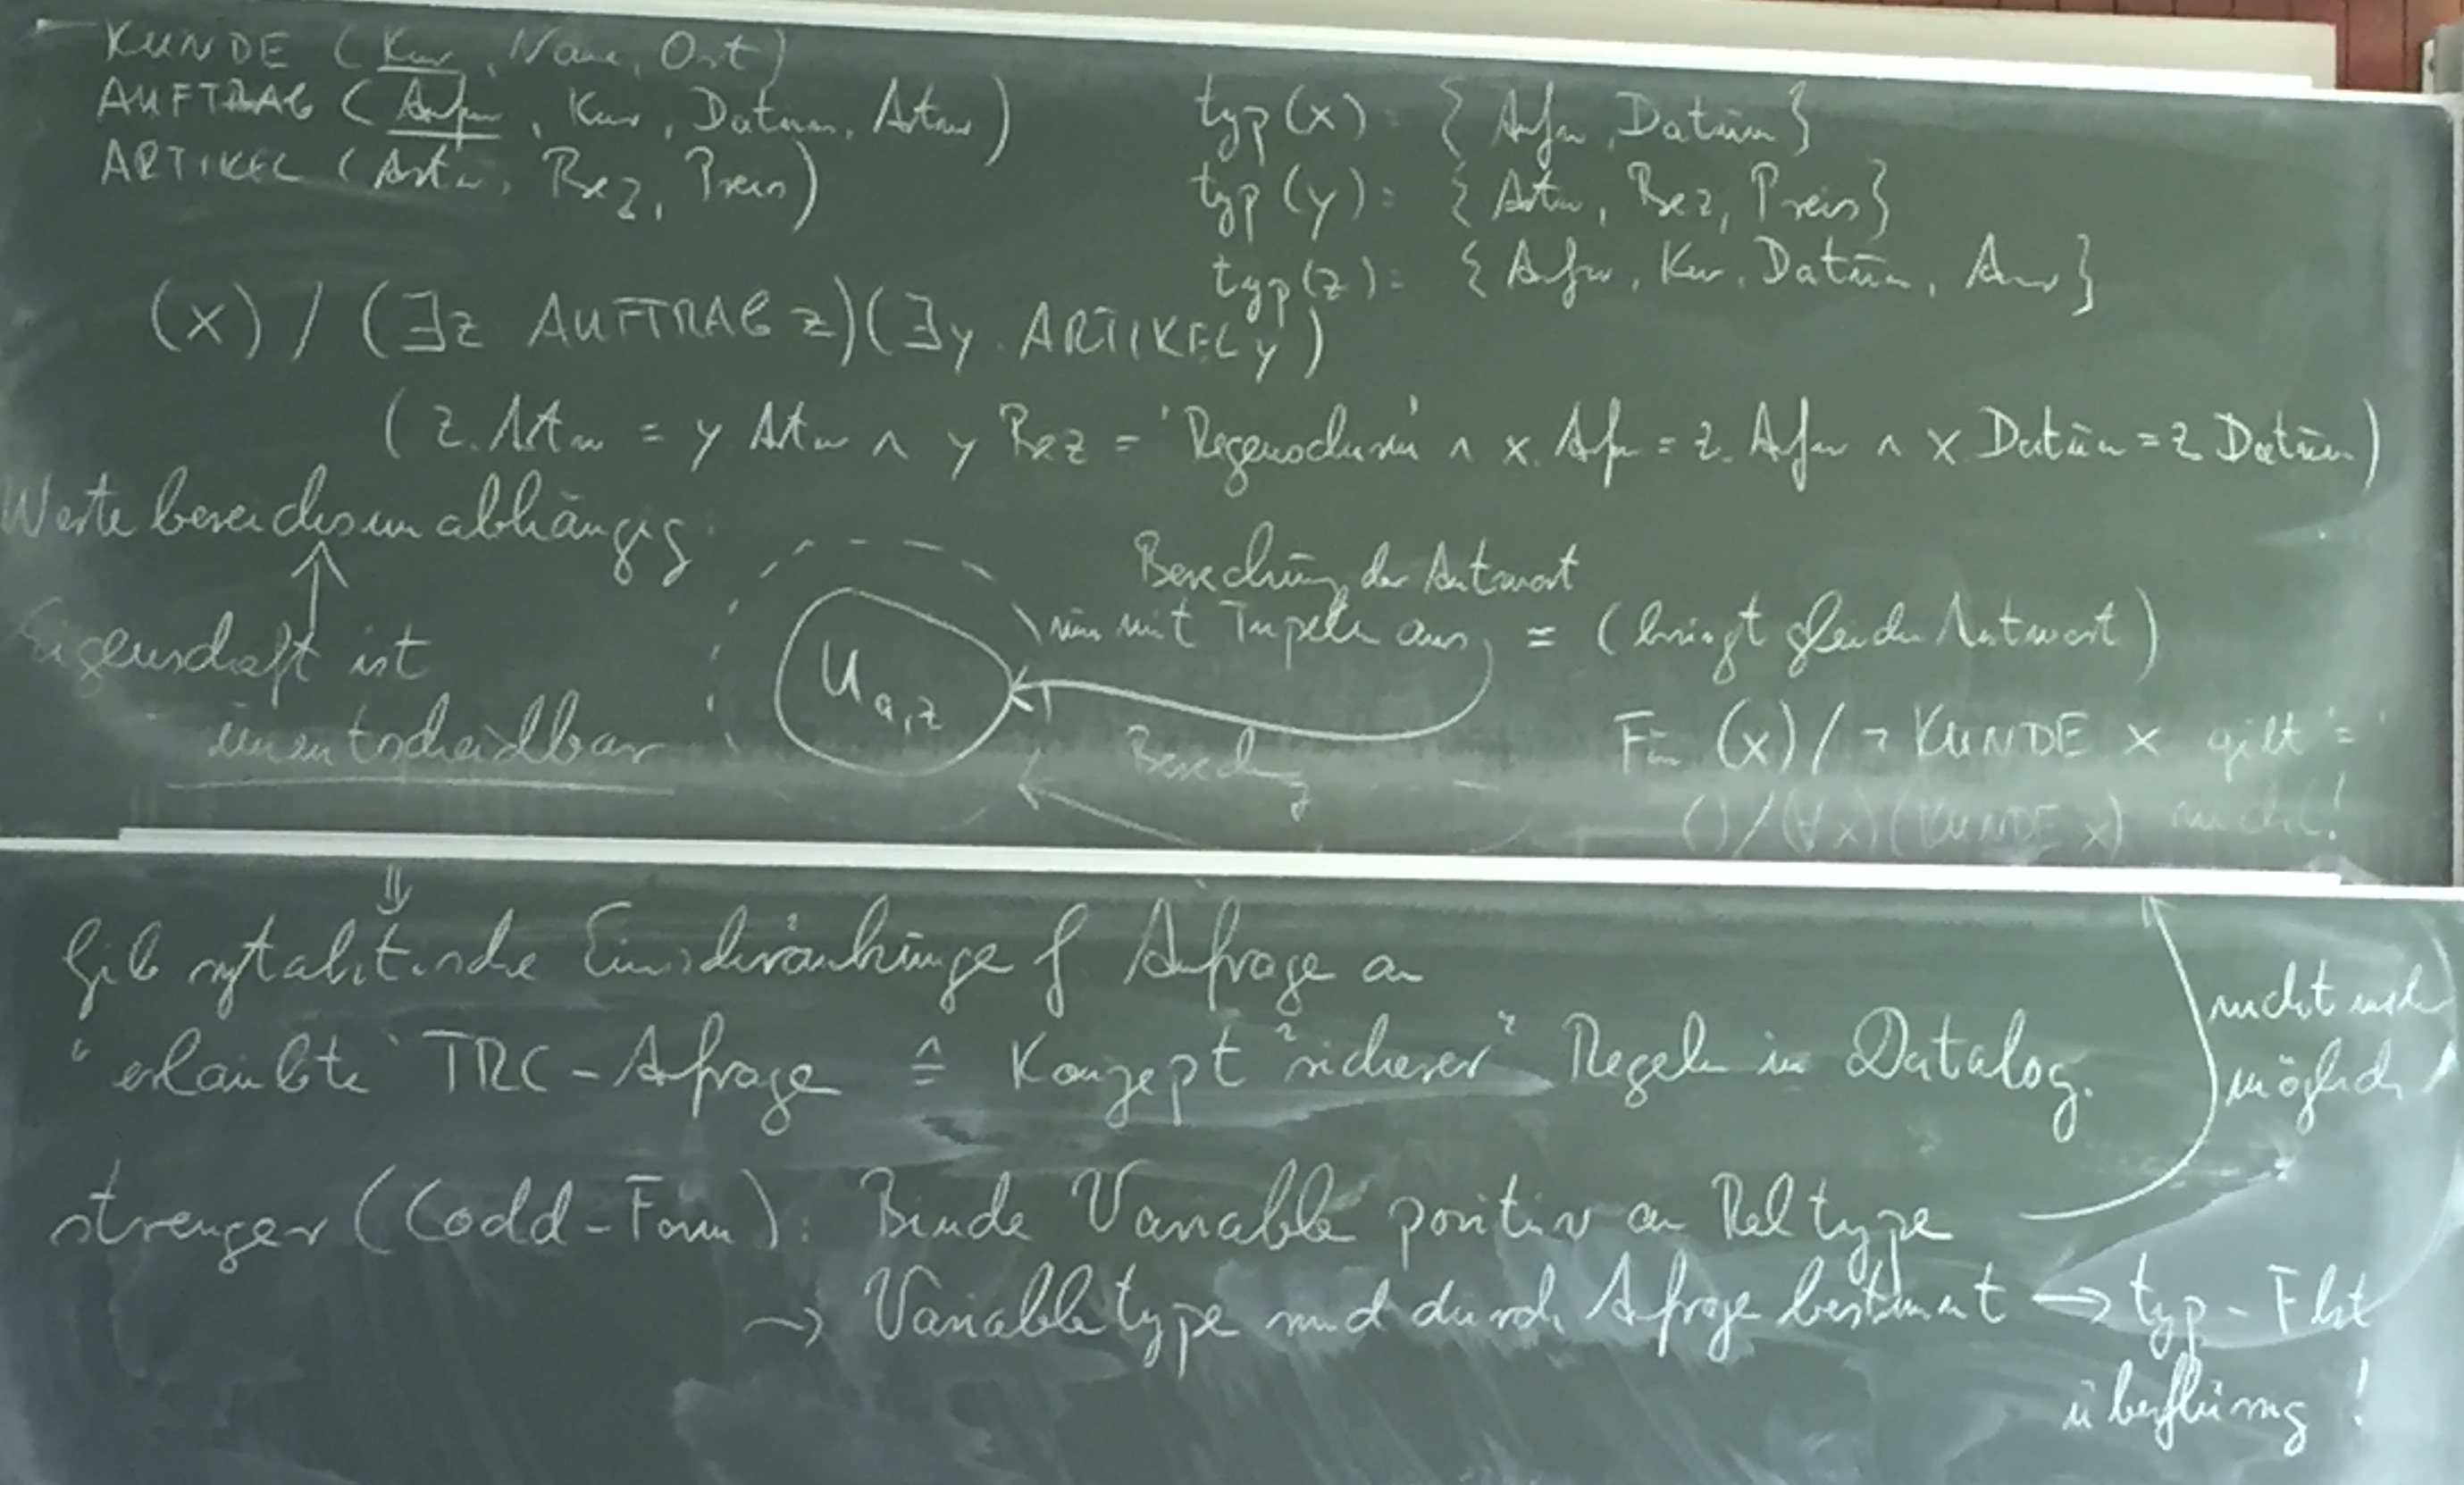 KUNDE (Knr, Name, Ort)
AUFTRAG (Aufnr, Knr, Datum, Artnr)
ARTIKEL (Artnr, Bez, Preis)
typ(x) = { Aufnr, Datum }
typ(y) = { Artnr, Bez, Preis }
typ(z) = { Aufnr, Knr, Datum, Anr }
(x) / (∃z AUFTRAG z)(∃y ARTIKEL y)
(z.Artnr = y Artnr ∧ y Bez = 'Regenschirm' ∧ x.Afnr = z.Afnr ∧ x Datum = z Datum)
Wertebereichsunabhängig
Eigenschaft ist
unentscheidbar
U a,z
Berechnung der Antwort
nur mit Tupeln aus = (bringt gleiche Antwort)
Berech
Für (x) / ¬ KUNDE x gilt '='
() / (∀x)(KUNDE x) nicht!
⇓
Gib syntaktische Einschränkunge f Anfrage an
"erlaubte" TRC-Afrage ≙ Konzept "sicherer" Regeln in Datalog.
strenger (Codd-Form): Binde Variable positiv an Reltype
nicht mehr
möglich
→ Variabletype sind durch Afrage bestimmt → typ-Fkt
überflüssig!